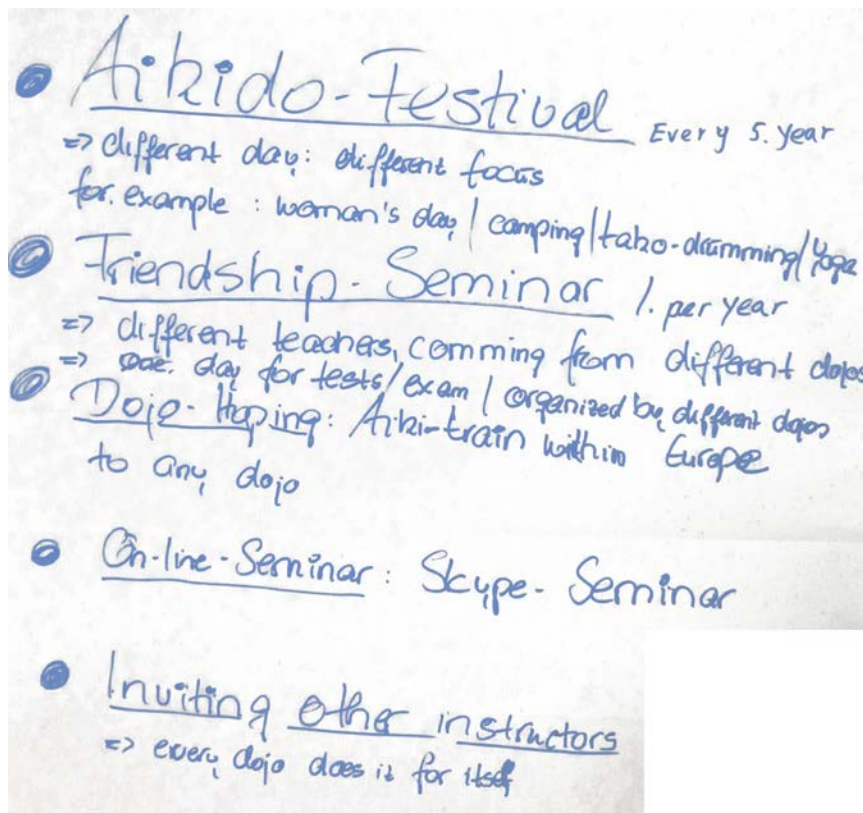 Aikido-Festival Every 5. year
=> different day: different focus
for. example : woman's day / camping / tako-drumming / Yoga
Friendship-Seminar 1. per year
=> different teachers, comming from different dojos
=> one. day for tests/exam / organized by different dojos
Dojo-Hoping: Aiki-train within Europe
to any dojo
On-line-Seminar: Skype-Seminar
Inviting other instructors
=> every dojo does it for itself